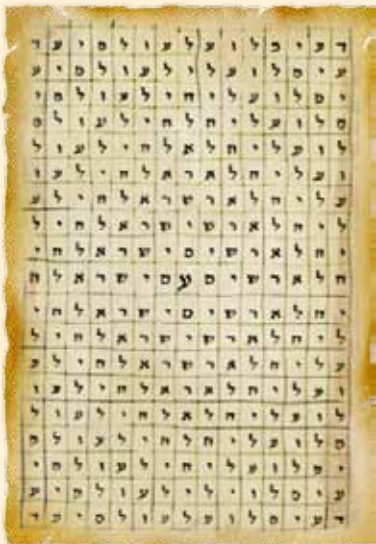 ד ע י מ ל ו ע ל ע ו ל מ י ע ד
ע י מ ל ו ע ל י ל ע ו ל מ י ע
י מ ל ו ע ל י ח י ל ע ו ל מ י
מ ל ו ע ל י ח ל ח י ל ע ו ל מ
ל ו ע ל י ח ל א ל ח י ל ע ו ל
ו ע ל י ח ל א ר א ל ח י ל ע ו
ע ל י ח ל א ר ש ר א ל ח י ל ע
ל י ח ל א ר ש י ש ר א ל ח י ל
י ח ל א ר ש י ם י ש ר א ל ח י
ח ל א ר ש י ם ע ם י ש ר א ל ח
י ח ל א ר ש י ם י ש ר א ל ח י
ל י ח ל א ר ש י ש ר א ל ח י ל
ע ל י ח ל א ר ש ר א ל ח י ל ע
ו ע ל י ח ל א ר א ל ח י ל ע ו
ל ו ע ל י ח ל א ל ח י ל ע ו ל
מ ל ו ע ל י ח ל ח י ל ע ו ל מ
י מ ל ו ע ל י ח י ל ע ו ל מ י
ע י מ ל ו ע ל י ל ע ו ל מ י ע
ד ע י מ ל ו ע ל ע ו ל מ י ע ד